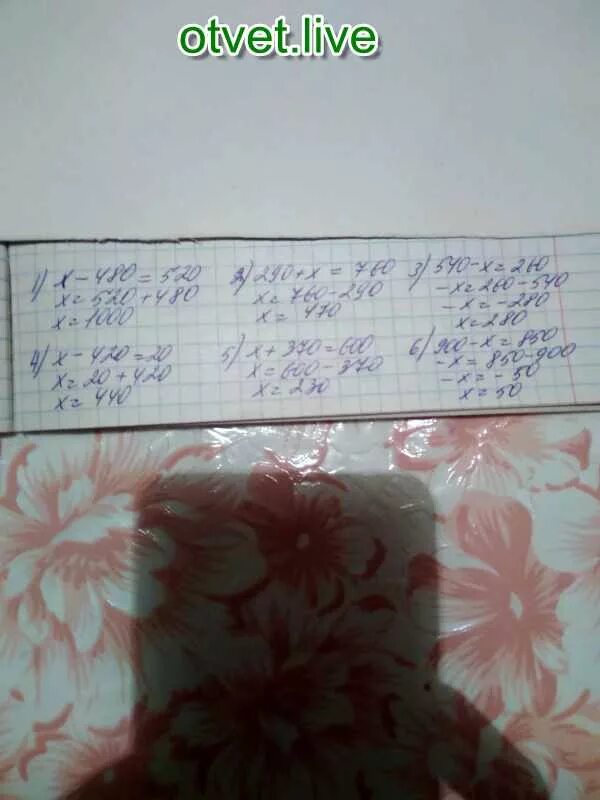 otvet.live
1) x - 480 = 520
x = 520 + 480
x = 1000
2) 290 + x = 760
x = 760 - 290
x = 470
3) 540 - x = 260
-x = 260 - 540
-x = -280
x = 280
4) x - 420 = 20
x = 20 + 420
x = 440
5) x + 370 = 600
x = 600 - 370
x = 230
6) 900 - x = 850
-x = 850 - 900
-x = -50
x = 50